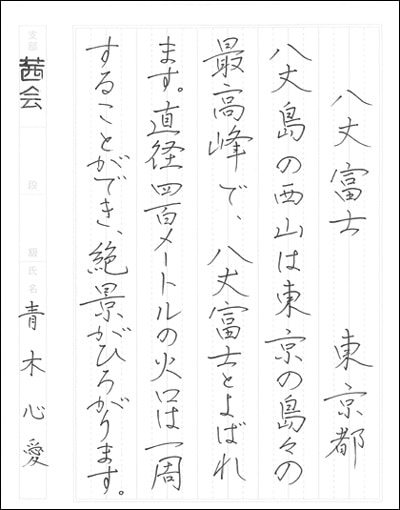 八丈富士　東京都
八丈島の西山は東京の島々の
最高峰で、八丈富士とよばれ
ます。直径四百メートルの火口は一周
することができ、絶景がひろがります。
支部 茜会 段 級 氏名 青木心愛